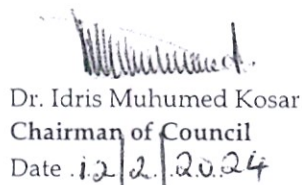 Dr. Idris Muhumed Kosar
Chairman of Council
Date .12/2/2024